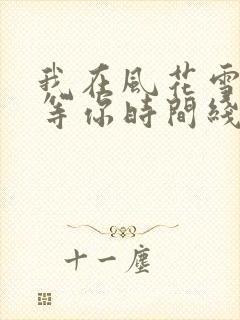 我在風花雪
等你時間綫
十一塵